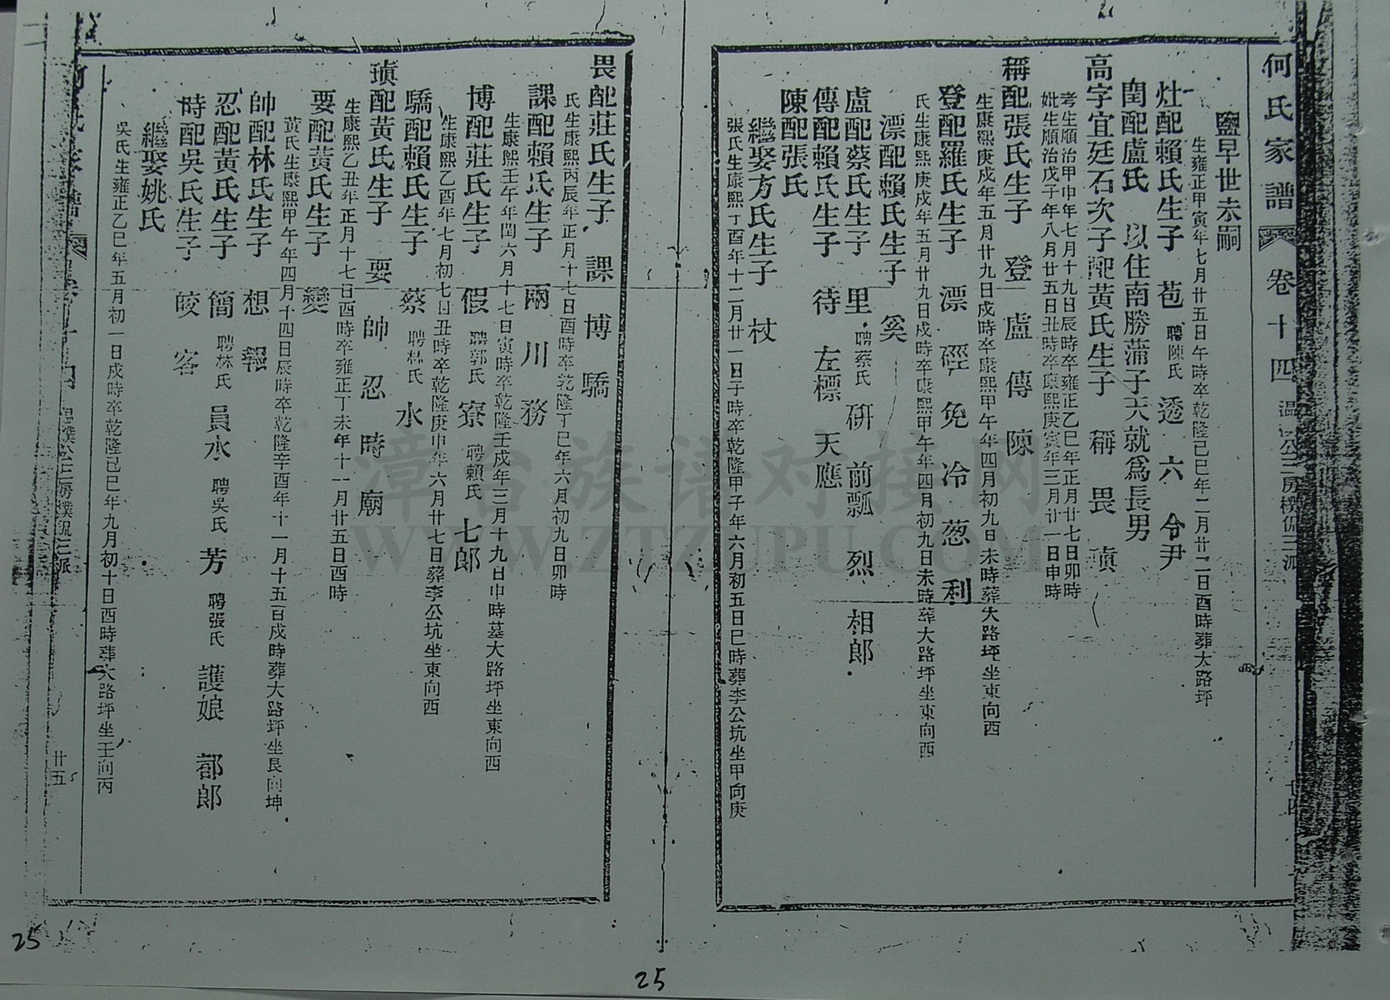 何氏家譜 卷十四
鹽早世未嗣
生雍正甲寅年七月廿五日午時卒乾隆己巳年二月廿二日酉時葬大路坪
灶配賴氏生子 苞 聘陳氏 透 六 令尹
閏配盧氏 以住南勝蒲子天就為長男
高字宜廷石次子配黃氏生子 稱 畏 瑱
考生順治甲申年七月十九日辰時卒雍正乙巳年正月廿七日卯時
妣生順治戊子年八月廿五日丑時卒康熙庚寅年三月廿一日申時
稱配張氏生子 登 盧 傳 陳
生康熙庚戌年五月廿九日戌時卒康熙甲午年四月初九日未時葬大路坪坐東向西
登配羅氏生子 漂 硜 免 冷 葱 利
氏生康熙庚戌年五月廿九日戌時卒康熙甲午年四月初九日未時葬大路坪坐東向西
漂配賴氏生子 奚
盧配蔡氏生子 里 聘蔡氏 研 前瓢 烈 相郎
傳配賴氏生子 待 左標 天應
陳配張氏
繼娶方氏生子 杖
張氏生康熙丁酉年十二月廿一日子時卒乾隆甲子年六月初五日巳時葬李公坑坐甲向庚
畏配莊氏生子 課 博 驕
氏生康熙丙辰年正月十七日酉時卒乾隆丁巳年六月初九日卯時
課配賴氏生子 兩 川 務
生康熙壬午年閏六月十七日寅時卒乾隆壬戌年三月十九日申時墓大路坪坐東向西
博配莊氏生子 假 聘郭氏 寮 聘賴氏 七郎
生康熙乙酉年七月初七日丑時卒乾隆庚申年六月廿七日葬李公坑坐東向西
驕配賴氏生子 蔡 聘林氏 水
瑱配黃氏生子 要 帥 忍 時 廟
生康熙乙丑年正月十七日酉時卒雍正丁未年十一月廿五日酉時
要配黃氏生子 變
黃氏生康熙甲午年四月十四日辰時卒乾隆辛酉年十一月十五日戌時葬大路坪坐艮向坤
帥配林氏生子 想 報
忍配黃氏生子 簡 聘林氏 員水 聘吳氏 芳 聘張氏 護娘 郡郎
時配吳氏生子 皎 客
繼娶姚氏
吳氏生雍正乙巳年五月初一日戌時卒乾隆己巳年九月初十日酉時葬大路坪坐壬向丙
廿五
漳台族谱对接网
WWW.ZTZUPU.COM
25
25